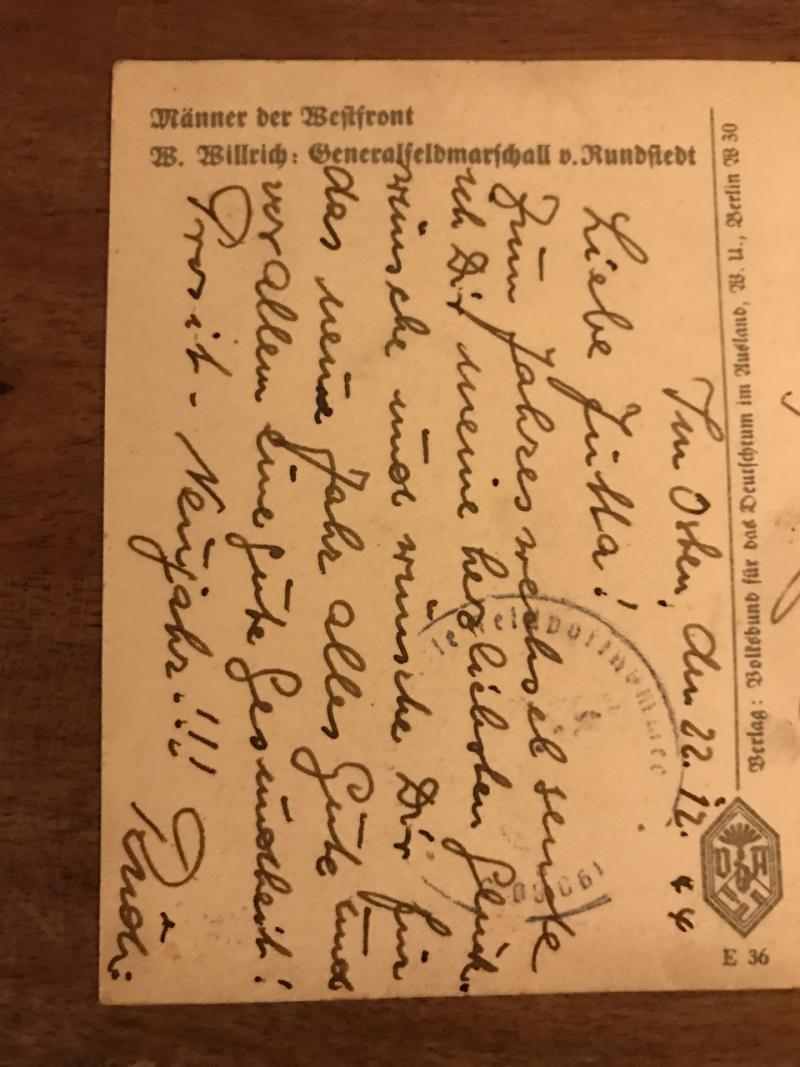 Männer der Westfront
W. Willrich: Generalfeldmarschall v. Rundstedt
Im Osten, den 22. 12. 44
Liebe Jutta!
Zum Jahreswechsel sende
ich Dir meine herzlichsten Glück-
wünsche und wünsche Dir für
das neue Jahr alles Gute und
vor allem eine gute Gesundheit!
Prosit - Neujahr!!!
Rudi.
Verlag: Volksbund für das Deutschtum im Ausland, W. U., Berlin W 30
E 36